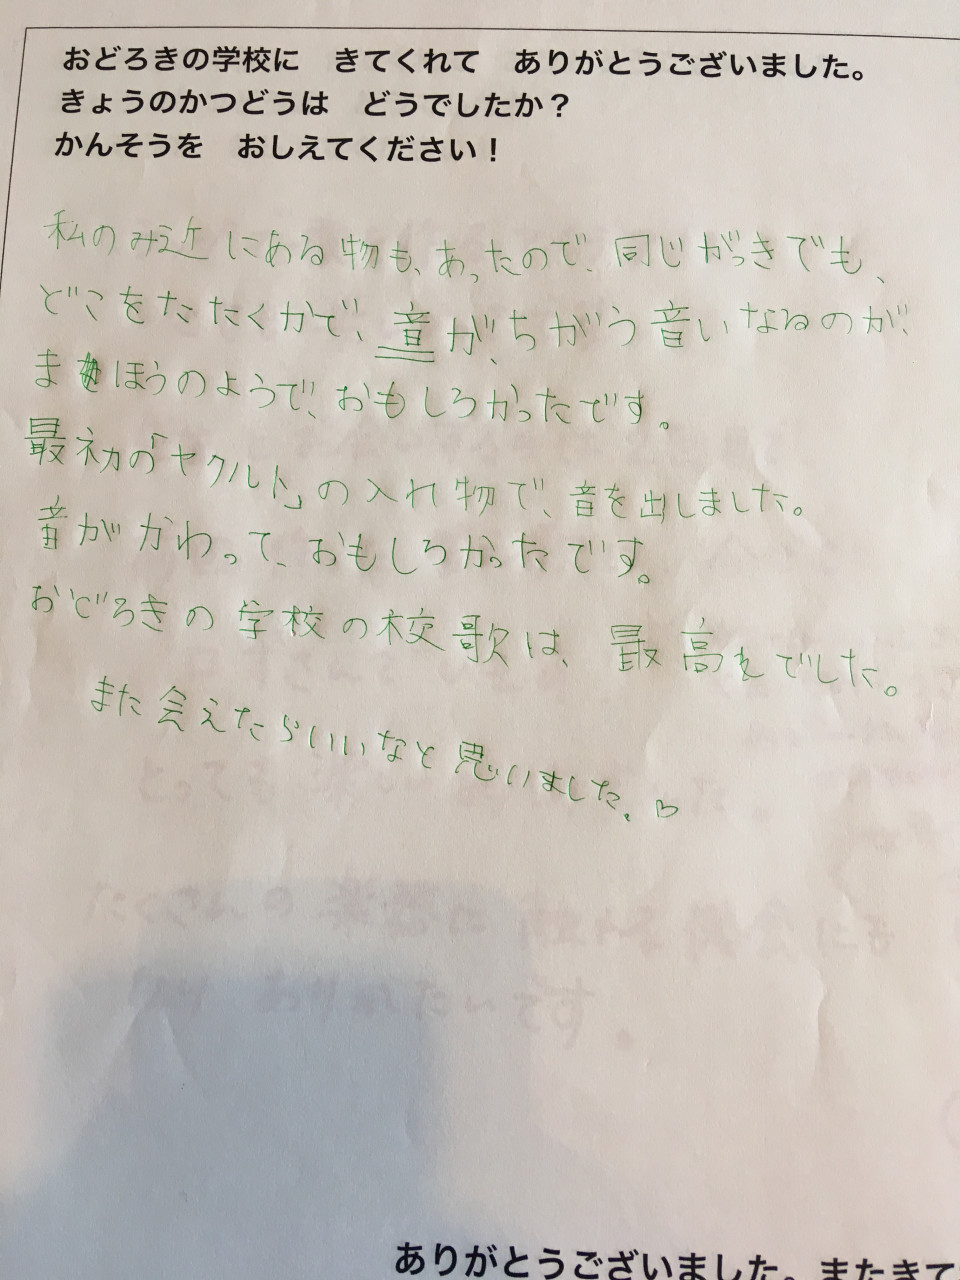 おどろきの学校に　きてくれて　ありがとうございました。
きょうのかつどうは　どうでしたか？
かんそうを　おしえてください！
私のみ近にある物も、あったので、同じがっきでも、
どこをたたくかで、音が、ちがう音いなるのが、
まほうのようで、おもしろかったです。
最初の「ヤクルト」の入れ物で、音を出しました。
音がかわって、おもしろかったです。
おどろきの学校の校歌は、最高でした。
また会えたらいいなと思いました。♡
ありがとうございました。またきて